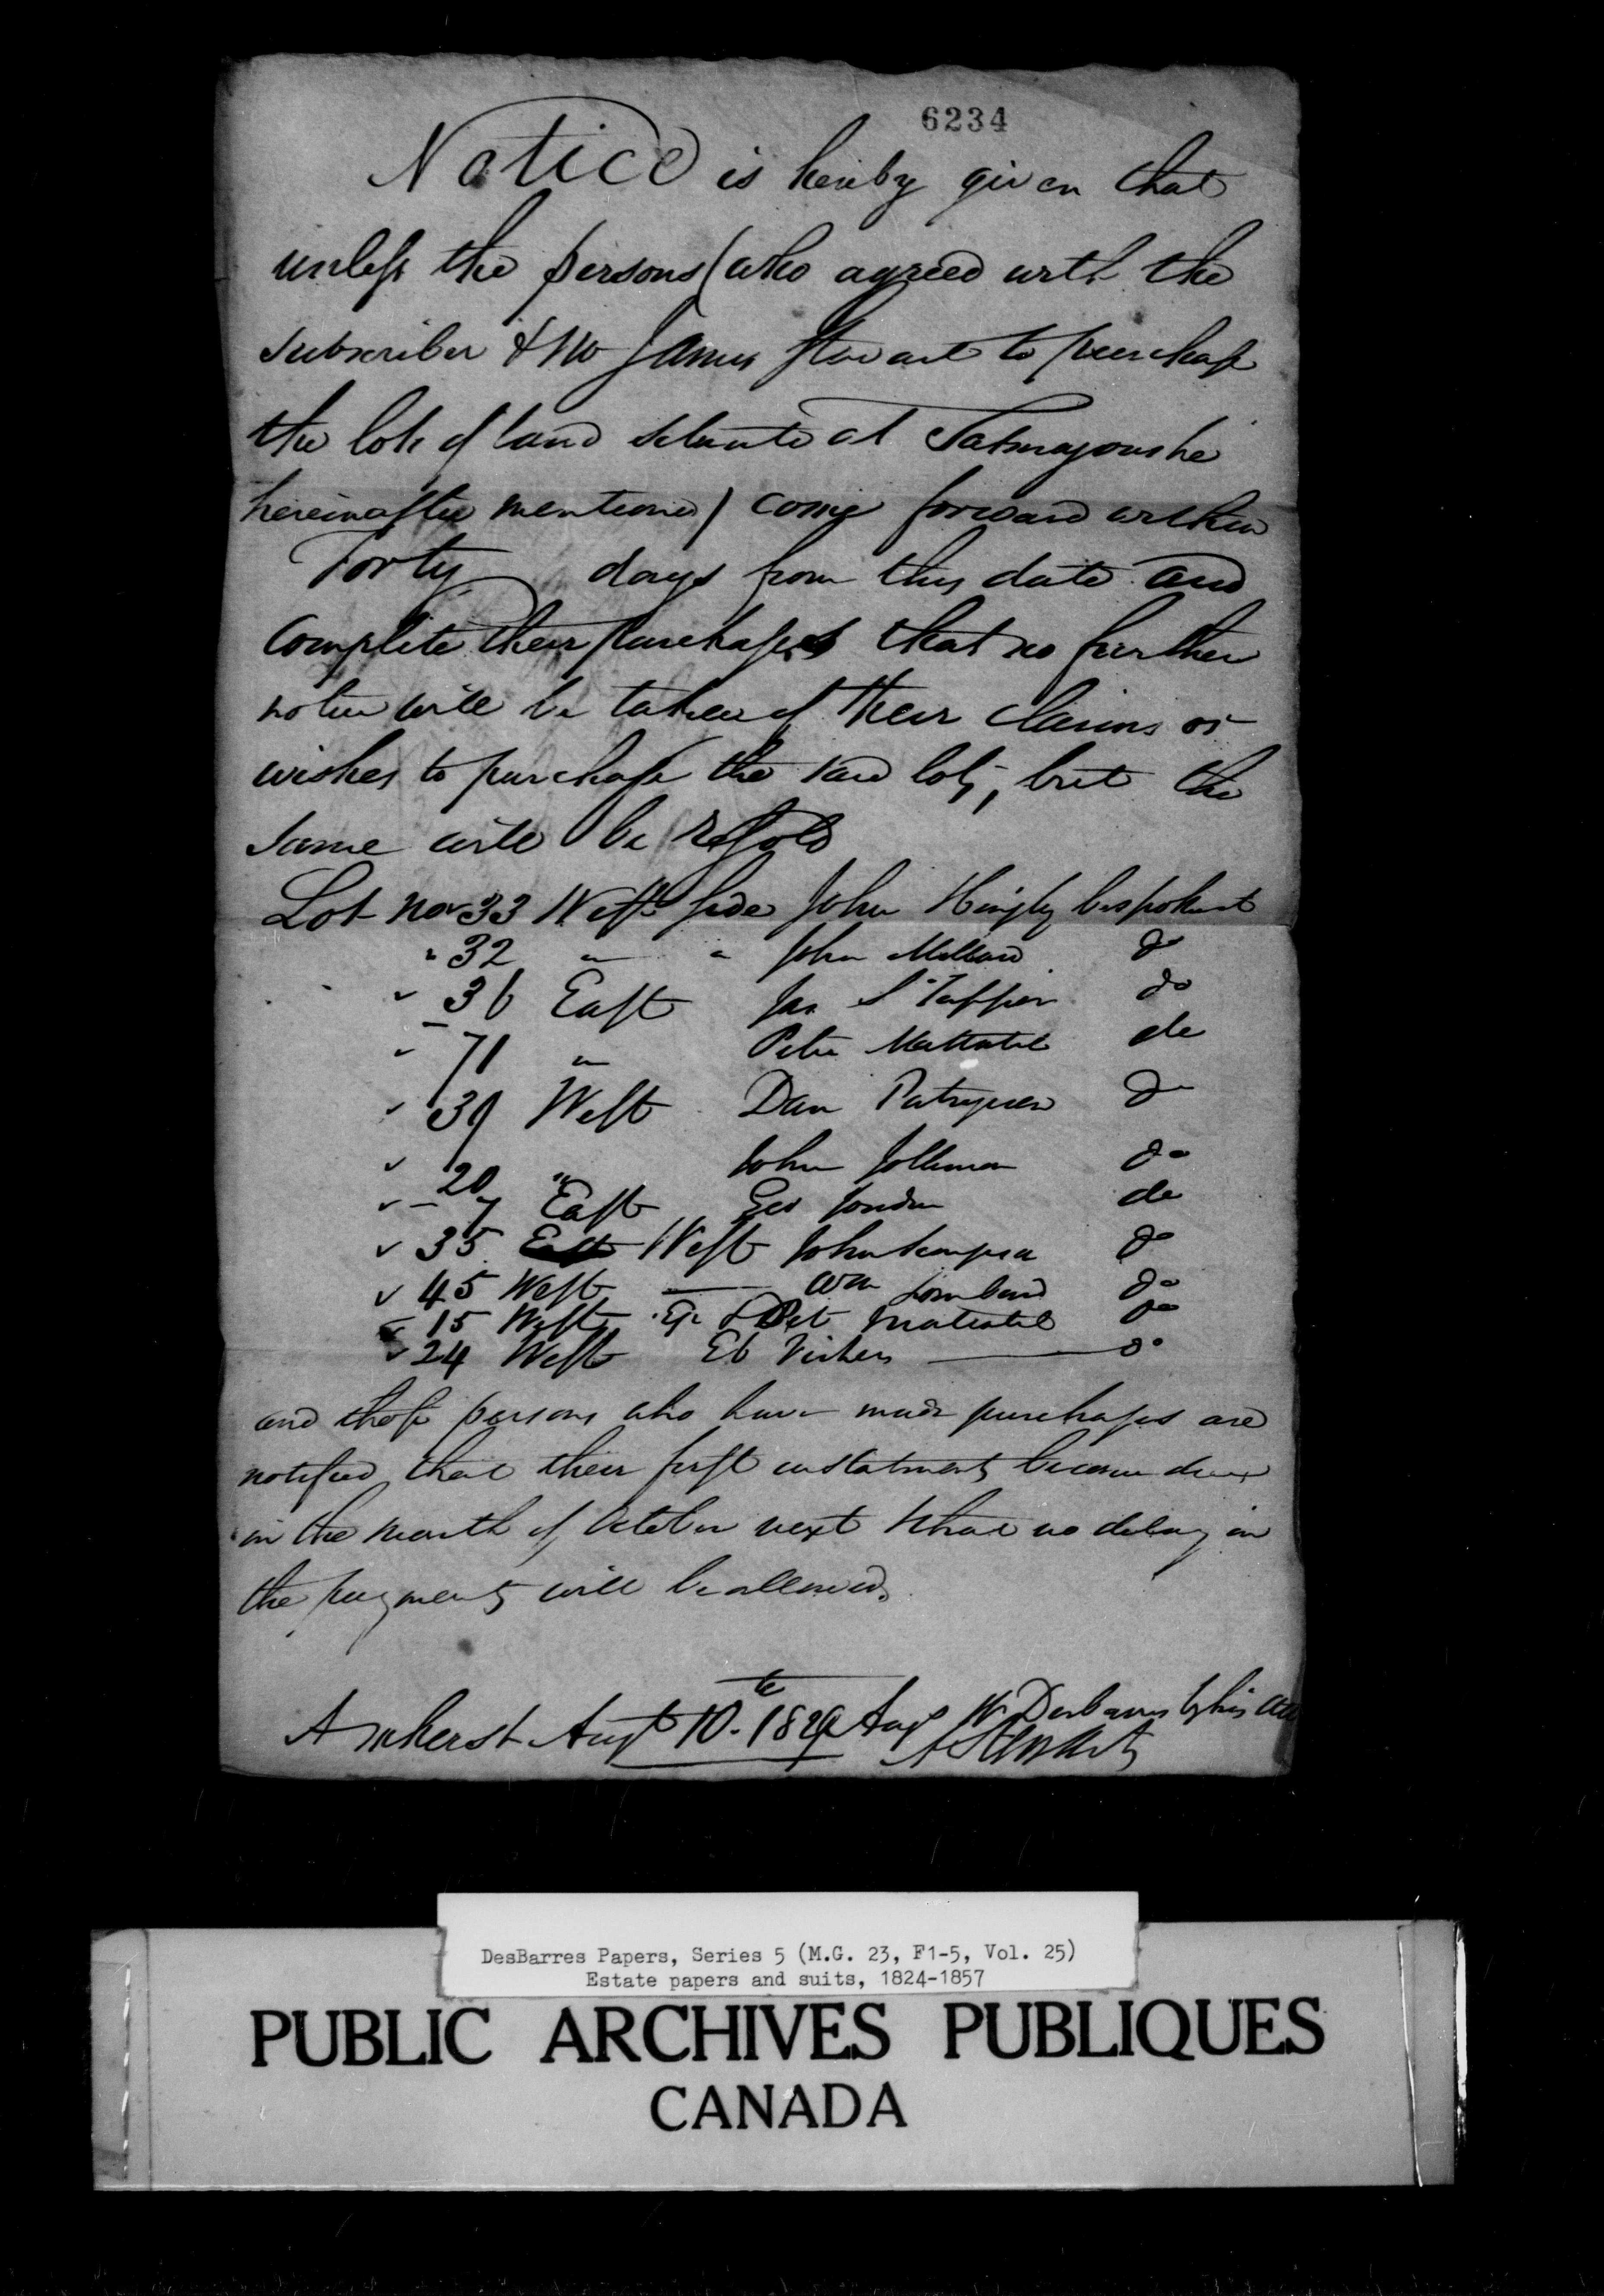 6234
Notice is hereby given that
unless the persons (who agreed with the
subscriber & Mr James Stewart to purchase
the lots of land situate at Tatmagoushe
hereinafter mentioned) come forward within
Forty days from this date and
complete their purchases that no further
notice will be taken of their claims or
wishes to purchase the said lots, but the
same will be resold
Lot No 33 West side John Hingly bespoke it
" 32 " " John Millard do
" 36 East Jas S Tupper do
" 71 " Peter Mattatal do
" 39 West Dan do
" 20 " John do
" 7 East Geo do
" 35 West John do
" 45 West — Wm Lombard do
" 15 West & Pet Matatal do
" 24 West Eb Vickers — do
and those persons who have made purchases are
notified that their first instalments become due
in the month of October next & that no delay in
the payments will be allowed.
Amherst Augt 10th 182 Augs W Desbarres by his Att
A Stewart
DesBarres Papers, Series 5 (M.G. 23, F1-5, Vol. 25)
Estate papers and suits, 1824-1857
PUBLIC ARCHIVES PUBLIQUES
CANADA